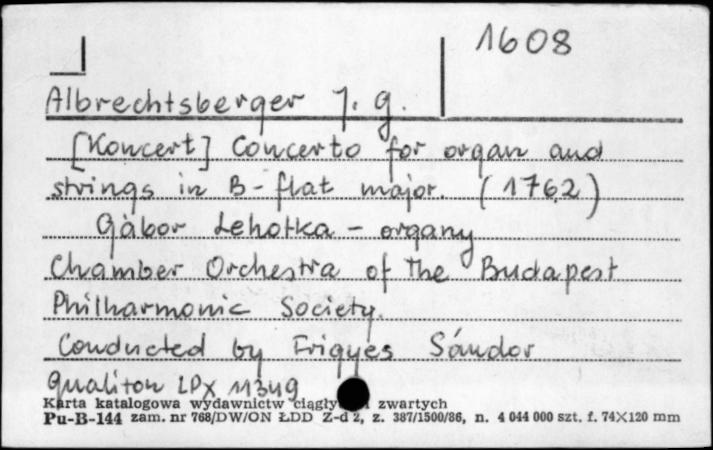 1608
Albrechtsberger J. g.
[Koncert] Concerto for organ and
strings in B-flat major. (1762)
Gàbor Lehotka - organy
Chamber Orchestra of The Budapest
Philharmonic Society.
Conducted by Frigyes Sándor
Qualiton LPX 11349
Karta katalogowa wydawnictw zwartych
Pu-B-144 zam. nr 768/DW/ON ŁDD Z-d 2, z. 387/1500/86, n. 4 044 000 szt. f. 74×120 mm